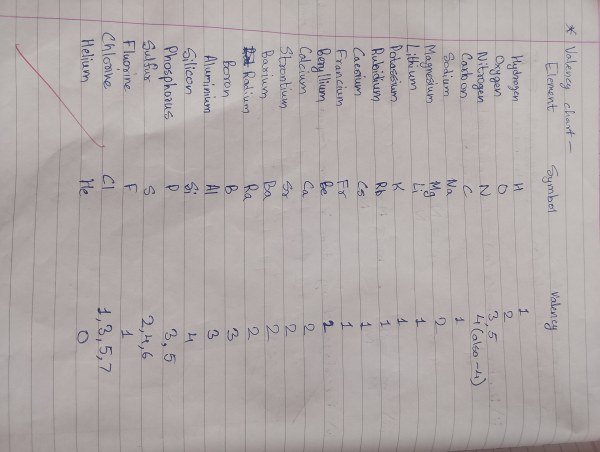 * Valency chart –
Element Symbol Valency
Hydrogen H 1
Oxygen O 2
Nitrogen N 3, 5
Carbon C 4 (also -4)
Sodium Na 1
Magnesium Mg 2
Lithium Li 1
Potassium K 1
Rubidium Rb 1
Caesium Cs 1
Francium Fr 1
Beryllium Be 2
Calcium Ca 2
Strontium Sr 2
Barium Ba 2
Radium Ra 2
Boron B 3
Aluminium Al 3
Silicon Si 4
Phosphorus P 3, 5
Sulfur S 2, 4, 6
Fluorine F 1
Chlorine Cl 1, 3, 5, 7
Helium He 0